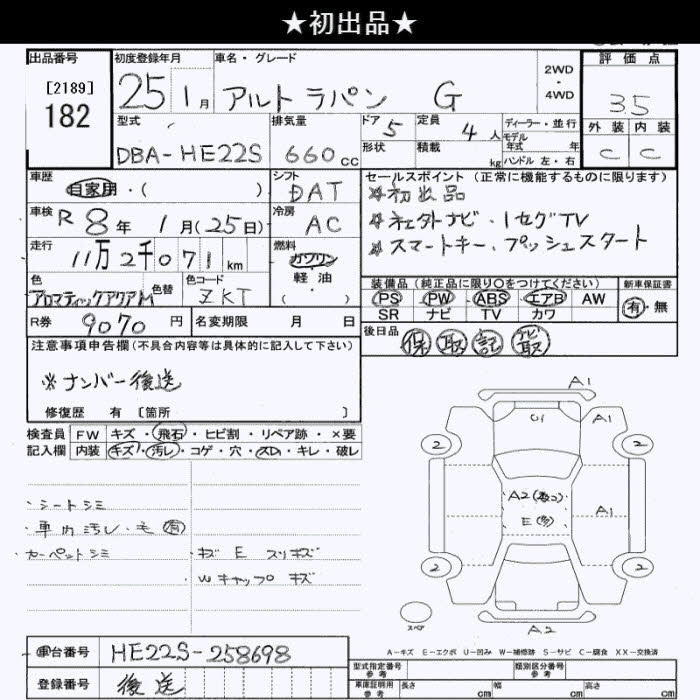 ★初出品★
出品番号
[2189]
182
初度登録年月
25 1月
車名・グレード
アルトラパン G
2WD
・
4WD
評価点
3.5
外装 内装
C C
型式
DBA-HE22S
排気量
660 cc
ドア 5
形状
定員 4 人
積載 kg
ディーラー・並行
モデル年式 年
ハンドル 左・右
車歴
自家用・( )
シフト
DAT
セールスポイント (正常に機能するものに限ります)
※初出品
※社外ナビ・1セグTV
※スマートキー、プッシュスタート
車検 R 8年 1月(25日)
冷房
AC
走行
11万2千071 km
燃料
ガソリン
軽油
・( )
色
アロマティックアクアM
色替
色コード
ZKT
装備品 (純正品に限り○をつけてください)
PS PW ABS エアB AW
SR ナビ TV カワ
新車保証書
有・無
R券 9070 円
名変期限 月 日
後日品
保 取 記 ナビ取
注意事項申告欄 (不具合内容等は具体的に記入して下さい)
※ナンバー後送
修復歴 有 [箇所 ]
検査員
記入欄
FW キズ・飛石・ヒビ割・リペア跡・×要
内装 キズ・汚レ・コゲ・穴・スレ・キレ・破レ
・シートシミ
・車内汚レ・毛有
・カーペットシミ
・キズ E スリキズ
・Wキャップ キズ
A1
U1
A1
2
2
A2(数コ)
E(多)
A1
2
2
スペア
A2
A-キズ E-エクボ U-凹み W-補修跡 S-サビ C-腐食 XX-交換済
車台番号 HE22S-258698
登録番号 後送
型式指定番号
参考
類別区分番号
参考
車庫証明用
参考
長さ cm
幅 cm
高さ cm